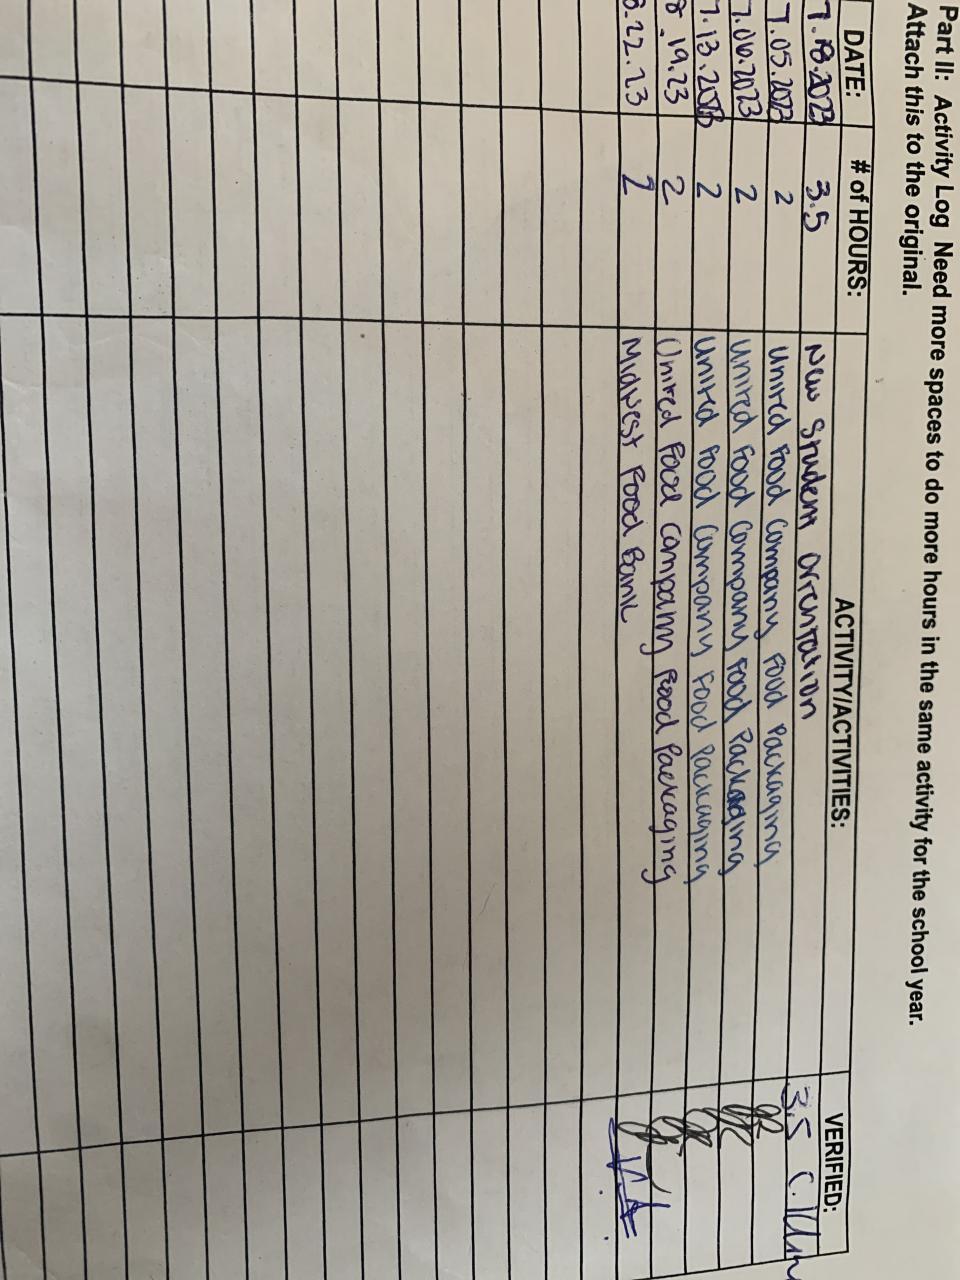 Part II: Activity Log Need more spaces to do more hours in the same activity for the school year.
Attach this to the original.
DATE: # of HOURS: ACTIVITY/ACTIVITIES: VERIFIED:
7.18.2023 3.5 New Student Orientation 3.5
7.05.2023 2 United Food Company Food Packaging
7.06.2023 2 United Food Company Food Packaging
7.13.2023 2 United Food Company Food Packaging
8.19.23 2 United Food Company Food Packaging
8.22.23 2 Midwest Food Bank